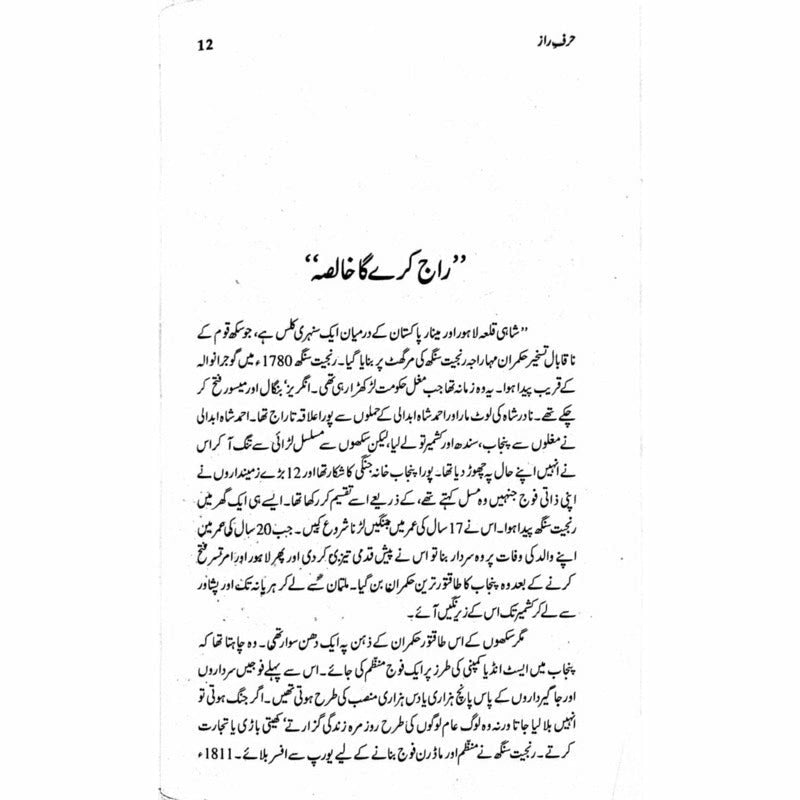 حرفِ راز
12
”راج کرے گا خالصہ“
”شاہی قلعہ لاہور اور مینار پاکستان کے درمیان ایک سنہری کلس ہے، جو سکھ قوم کے
ناقابل تسخیر حکمران مہاراجہ رنجیت سنگھ کی مرگھٹ پر بنایا گیا۔ رنجیت سنگھ 1780ء میں گوجرانوالہ
کے قریب پیدا ہوا۔ یہ وہ زمانہ تھا جب مغل حکومت لڑکھڑا رہی تھی۔ انگریز، بنگال اور میسور فتح کر
چکے تھے۔ نادر شاہ کی لوٹ مار اور احمد شاہ ابدالی کے حملوں سے پورا علاقہ تاراج تھا۔ احمد شاہ ابدالی
نے مغلوں سے پنجاب، سندھ اور کشمیر تو لے لیا، لیکن سکھوں سے مسلسل لڑائی سے تنگ آ کر اس
نے انہیں اپنے حال پہ چھوڑ دیا تھا۔ پورا پنجاب خانہ جنگی کا شکار تھا اور 12 بڑے زمینداروں نے
اپنی ذاتی فوج جنہیں وہ مسل کہتے تھے، کے ذریعے اسے تقسیم کر رکھا تھا۔ ایسے ہی ایک گھر میں
رنجیت سنگھ پیدا ہوا۔ اس نے 17 سال کی عمر میں جنگیں لڑنا شروع کیں۔ جب 20 سال کی عمر میں
اپنے والد کی وفات پر وہ سردار بنا تو اس نے پیش قدمی تیزی کر دی اور پھر لاہور اور امرتسر فتح
کرنے کے بعد وہ پنجاب کا طاقتور ترین حکمران بن گیا۔ ملتان سے لے کر ہریانہ تک اور پشاور
سے لے کر کشمیر تک اس کے زیر نگیں آئے۔
مگر سکھوں کے اس طاقتور حکمران کے ذہن پہ ایک دھن سوار تھی۔ وہ چاہتا تھا کہ
پنجاب میں ایسٹ انڈیا کمپنی کی طرز پر ایک فوج منظم کی جائے۔ اس سے پہلے فوجیں سرداروں
اور جاگیرداروں کے پاس پانچ ہزاری یا دس ہزاری منصب کی طرح ہوتی تھیں۔ اگر جنگ ہوتی تو
انہیں بلا لیا جاتا ورنہ وہ لوگ عام لوگوں کی طرح روز مرہ زندگی گزارتے، کھیتی باڑی یا تجارت
کرتے۔ رنجیت سنگھ نے منظم اور ماڈرن فوج بنانے کے لیے یورپ سے افسر بلائے۔ 1811ء